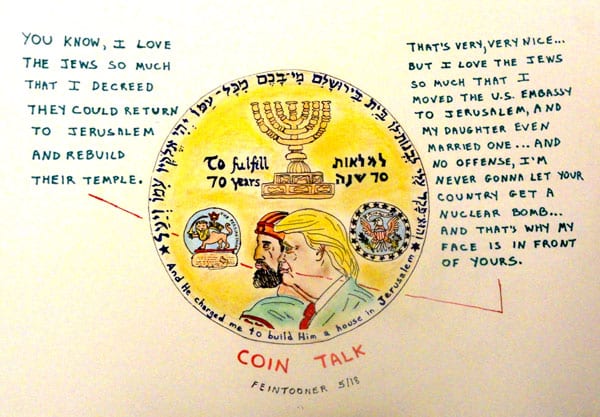 YOU KNOW, I LOVE
THE JEWS SO MUCH
THAT I DECREED
THEY COULD RETURN
TO JERUSALEM
AND REBUILD
THEIR TEMPLE.
לבנות-לו בית בירושלים מי-בכם מכל-עמו יהי אלקיו עמו ויעל
To fulfill
70 years
למלאות
70 שנה
And He charged me to build Him a house in Jerusalem
THAT'S VERY, VERY NICE...
BUT I LOVE THE JEWS
SO MUCH THAT I
MOVED THE U.S. EMBASSY
TO JERUSALEM, AND
MY DAUGHTER EVEN
MARRIED ONE... AND
NO OFFENSE, I'M
NEVER GONNA LET YOUR
COUNTRY GET A
NUCLEAR BOMB...
AND THAT'S WHY MY
FACE IS IN FRONT
OF YOURS.
COIN TALK
FEINTOONER 5/18